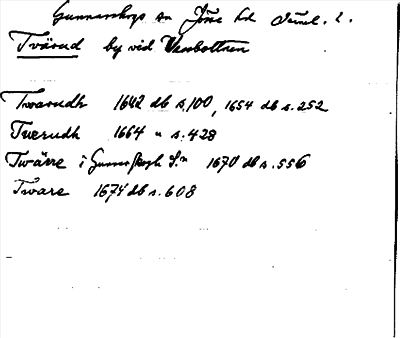 Gunnarskogs sn Jösse hd Värml. l.
Tvärud by vid Vassbottnen
Twarudh 1642 db s. 100, 1654 db s. 252
Twerudh 1664 " s. 428
Twärre i Gunnerskogh S:n 1670 db s. 556
Tware 1674 db s. 608